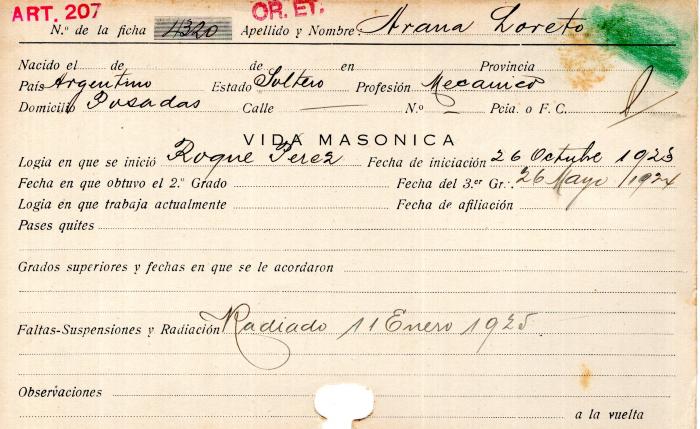 ART. 207 OR. ET.
N.º de la ficha 4320 Apellido y Nombre Arana Loreto
Nacido el de de en Provincia
País Argentino Estado Soltero Profesión Mecanico
Domicilio Posadas Calle — N.º — Pcia. o F. C.
VIDA MASONICA
Logia en que se inició Roque Perez Fecha de iniciación 26 Octubre 1923
Fecha en que obtuvo el 2.º Grado Fecha del 3.er Gr.·. 26 Mayo 1924
Logia en que trabaja actualmente Fecha de afiliación
Pases quites
Grados superiores y fechas en que se le acordaron
Faltas-Suspensiones y Radiación Radiado 11 Enero 1925
Observaciones
a la vuelta